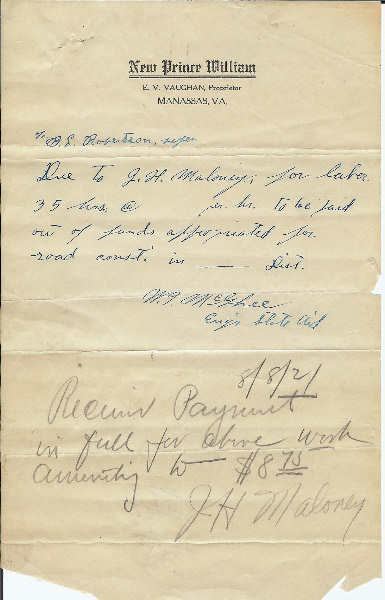 New Prince William
E. V. VAUGHAN, Proprietor
MANASSAS, VA.
To B.E. Robertson, supr
Due to J. H. Maloney, for labor
35 hrs. @ pr hr. to be paid
out of funds appropriated for
road const. in —— Dist.
W. F. McGhee
Eng'r State Aid
8/8/21
Receivd Payment
in full for above work
amounting to $8 75
J H Maloney